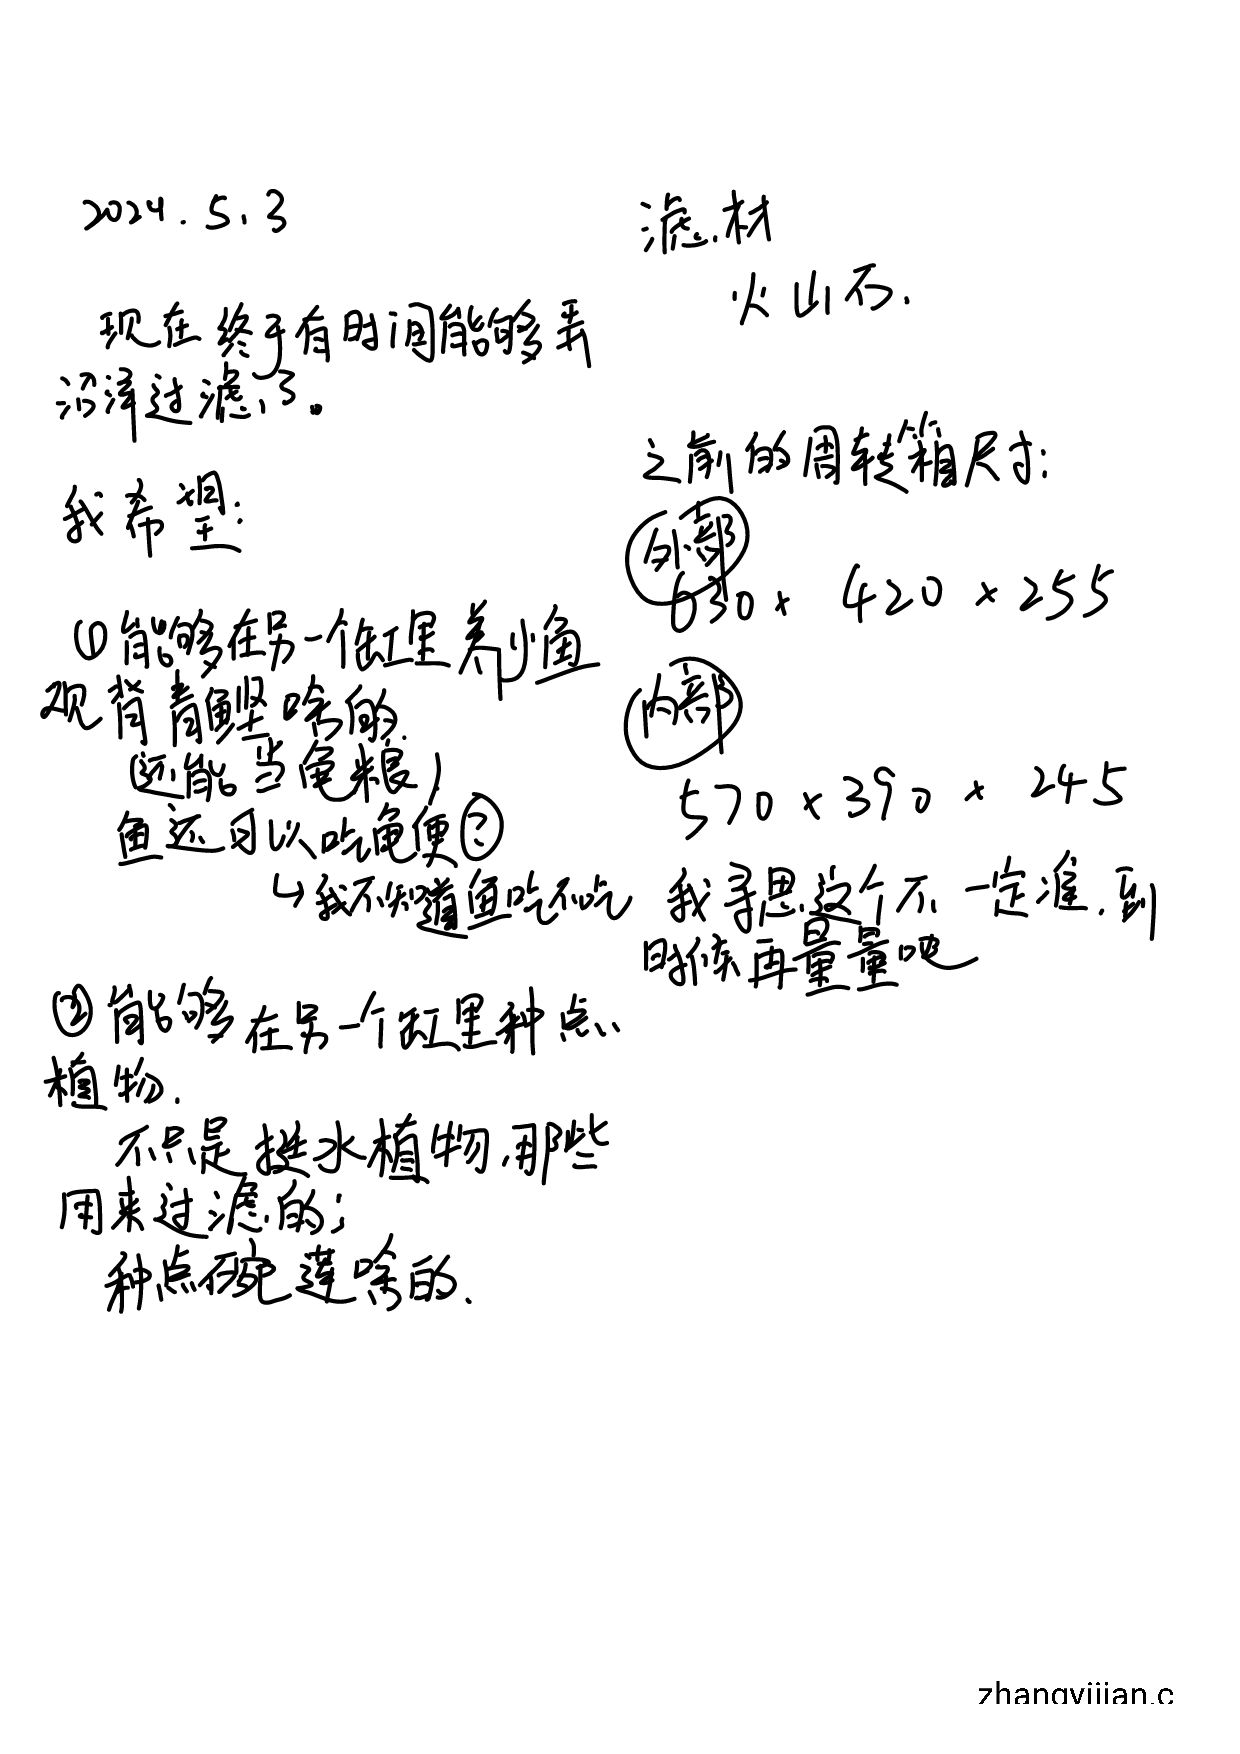 2024.5.3
现在终于有时间能够弄
沼泽过滤了。
我希望:
① 能够在另一个缸里养小鱼
观背青鳉啥的.
(还能当龟粮)
鱼还可以吃龟便?
↳我不知道鱼吃不吃
② 能够在另一个缸里种点
植物.
不只是挺水植物,那些
用来过滤的;
种点碗莲啥的.
滤材
火山石.
之前的周转箱尺寸:
外部
630 x 420 x 255
内部
570 x 390 x 245
我寻思这个不一定准.到
时候再量量吧
zhangyijian.c